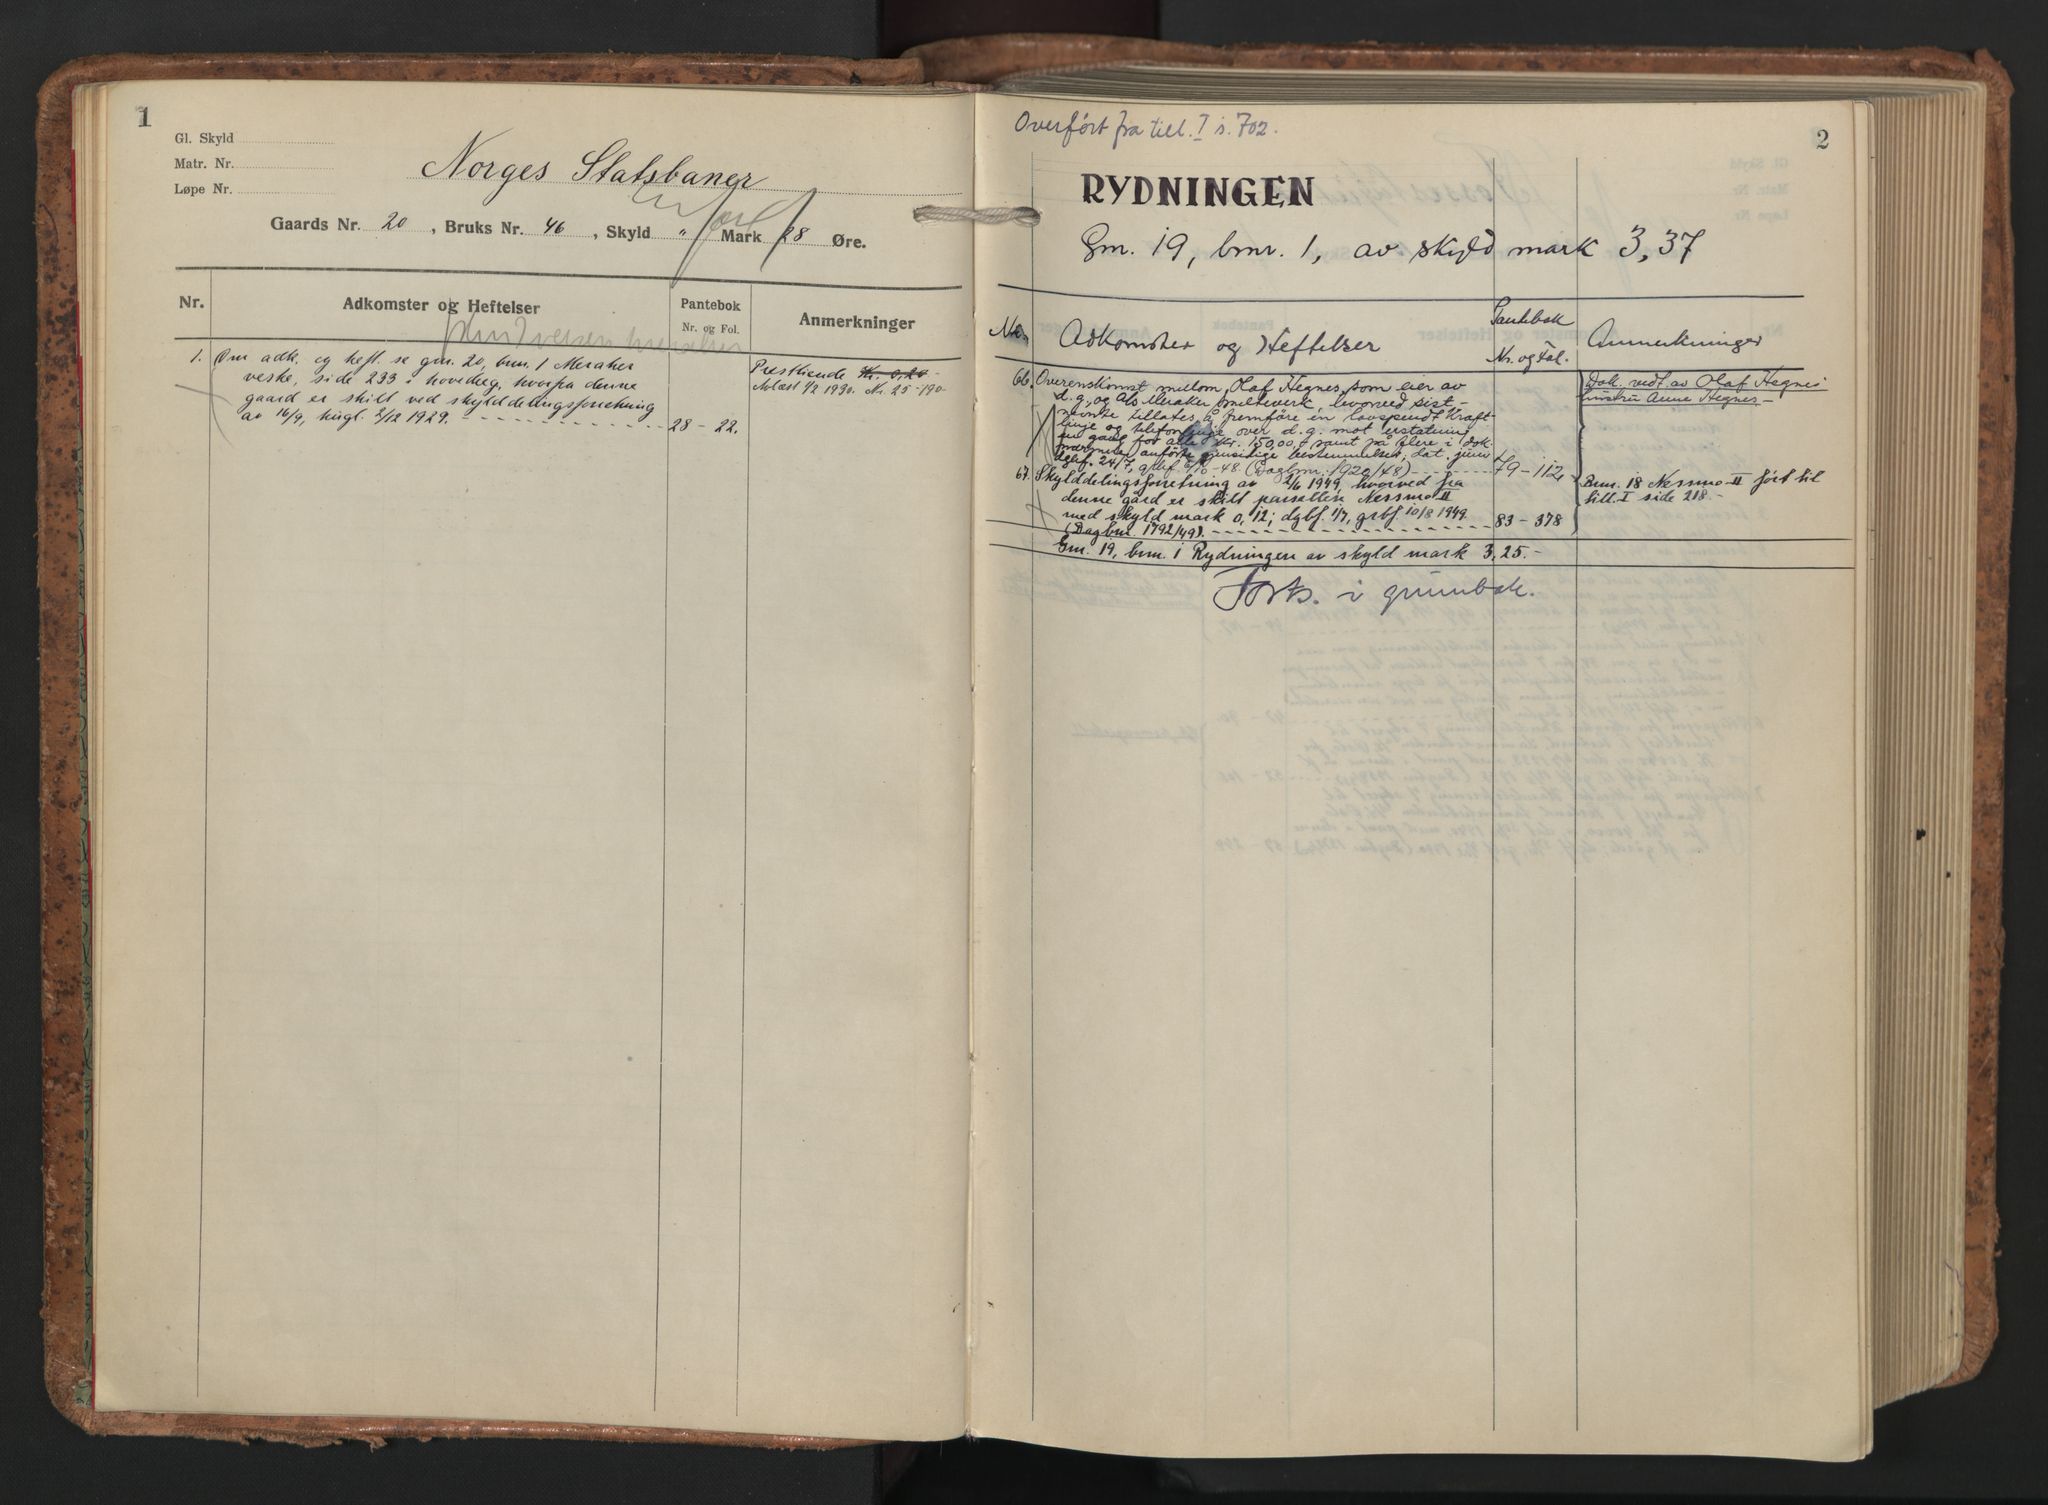 1
Gl. Skyld
Matr. Nr.
Løpe Nr.
Norges Statsbaner
Gaards Nr. 20, Bruks Nr. 46, Skyld " Mark 28 Øre.
Nr.
Adkomster og Heftelser
Pantebok
Nr. og Fol.
Anmerkninger
1. Om adk. og heft. se gnr. 20, bnr. 1 Meraker
vestre, side 233 i hovedreg, hvorfra denne
gaard er skilt ved skylddelingsforretning
av 16/9, tingl. 2/12 1929. - - - 28 - 22.
Presttiende Kr. 0,20 -
Avløst 1/2 1930. Nr. 25 - 190 -
Overført fra till. I s. 702.
2
RYDNINGEN
Gnr. 19, bnr. 1, av skyld mark 3,37
Nr.
Adkomster og Heftelser
Pantebok
Nr. og Fol.
Anmerkninger
66. Overenskomst mellom Olaf Hegnes, som eier av
d. g., og A/s Meraker smelteverk, hvorved sist-
nevnte tillates å fremføre en lavspendt kraft-
linje og telefonlinje over d. g. mot erstatning
en gang for alle kr. 150,00, samt på flere i dok.
nærmere anførte gjensidige bestemmelser; dat. juni
dgbf. 24/7, grbf. 6/10 - 48. (Dagbnr. 1920/48) - - - 79 - 112,
Dok. vedt. av Olaf Hegnes
hustru Anne Hegnes -
67. Skylddelingsforretning av 2/6 1949, hvorved fra
denne gård er skilt parsellen Nessmo II
med skyld mark 0,12; dgbf. 1/7, grbf. 10/8 1949.
(Dagbnr. 1792/49). - - - 83 - 378
Bnr. 18 Nessmo II ført til
till. I side 218. -
Gnr. 19, bnr. 1 Rydningen av skyld mark 3,25. -
Forts. i grunnbok.